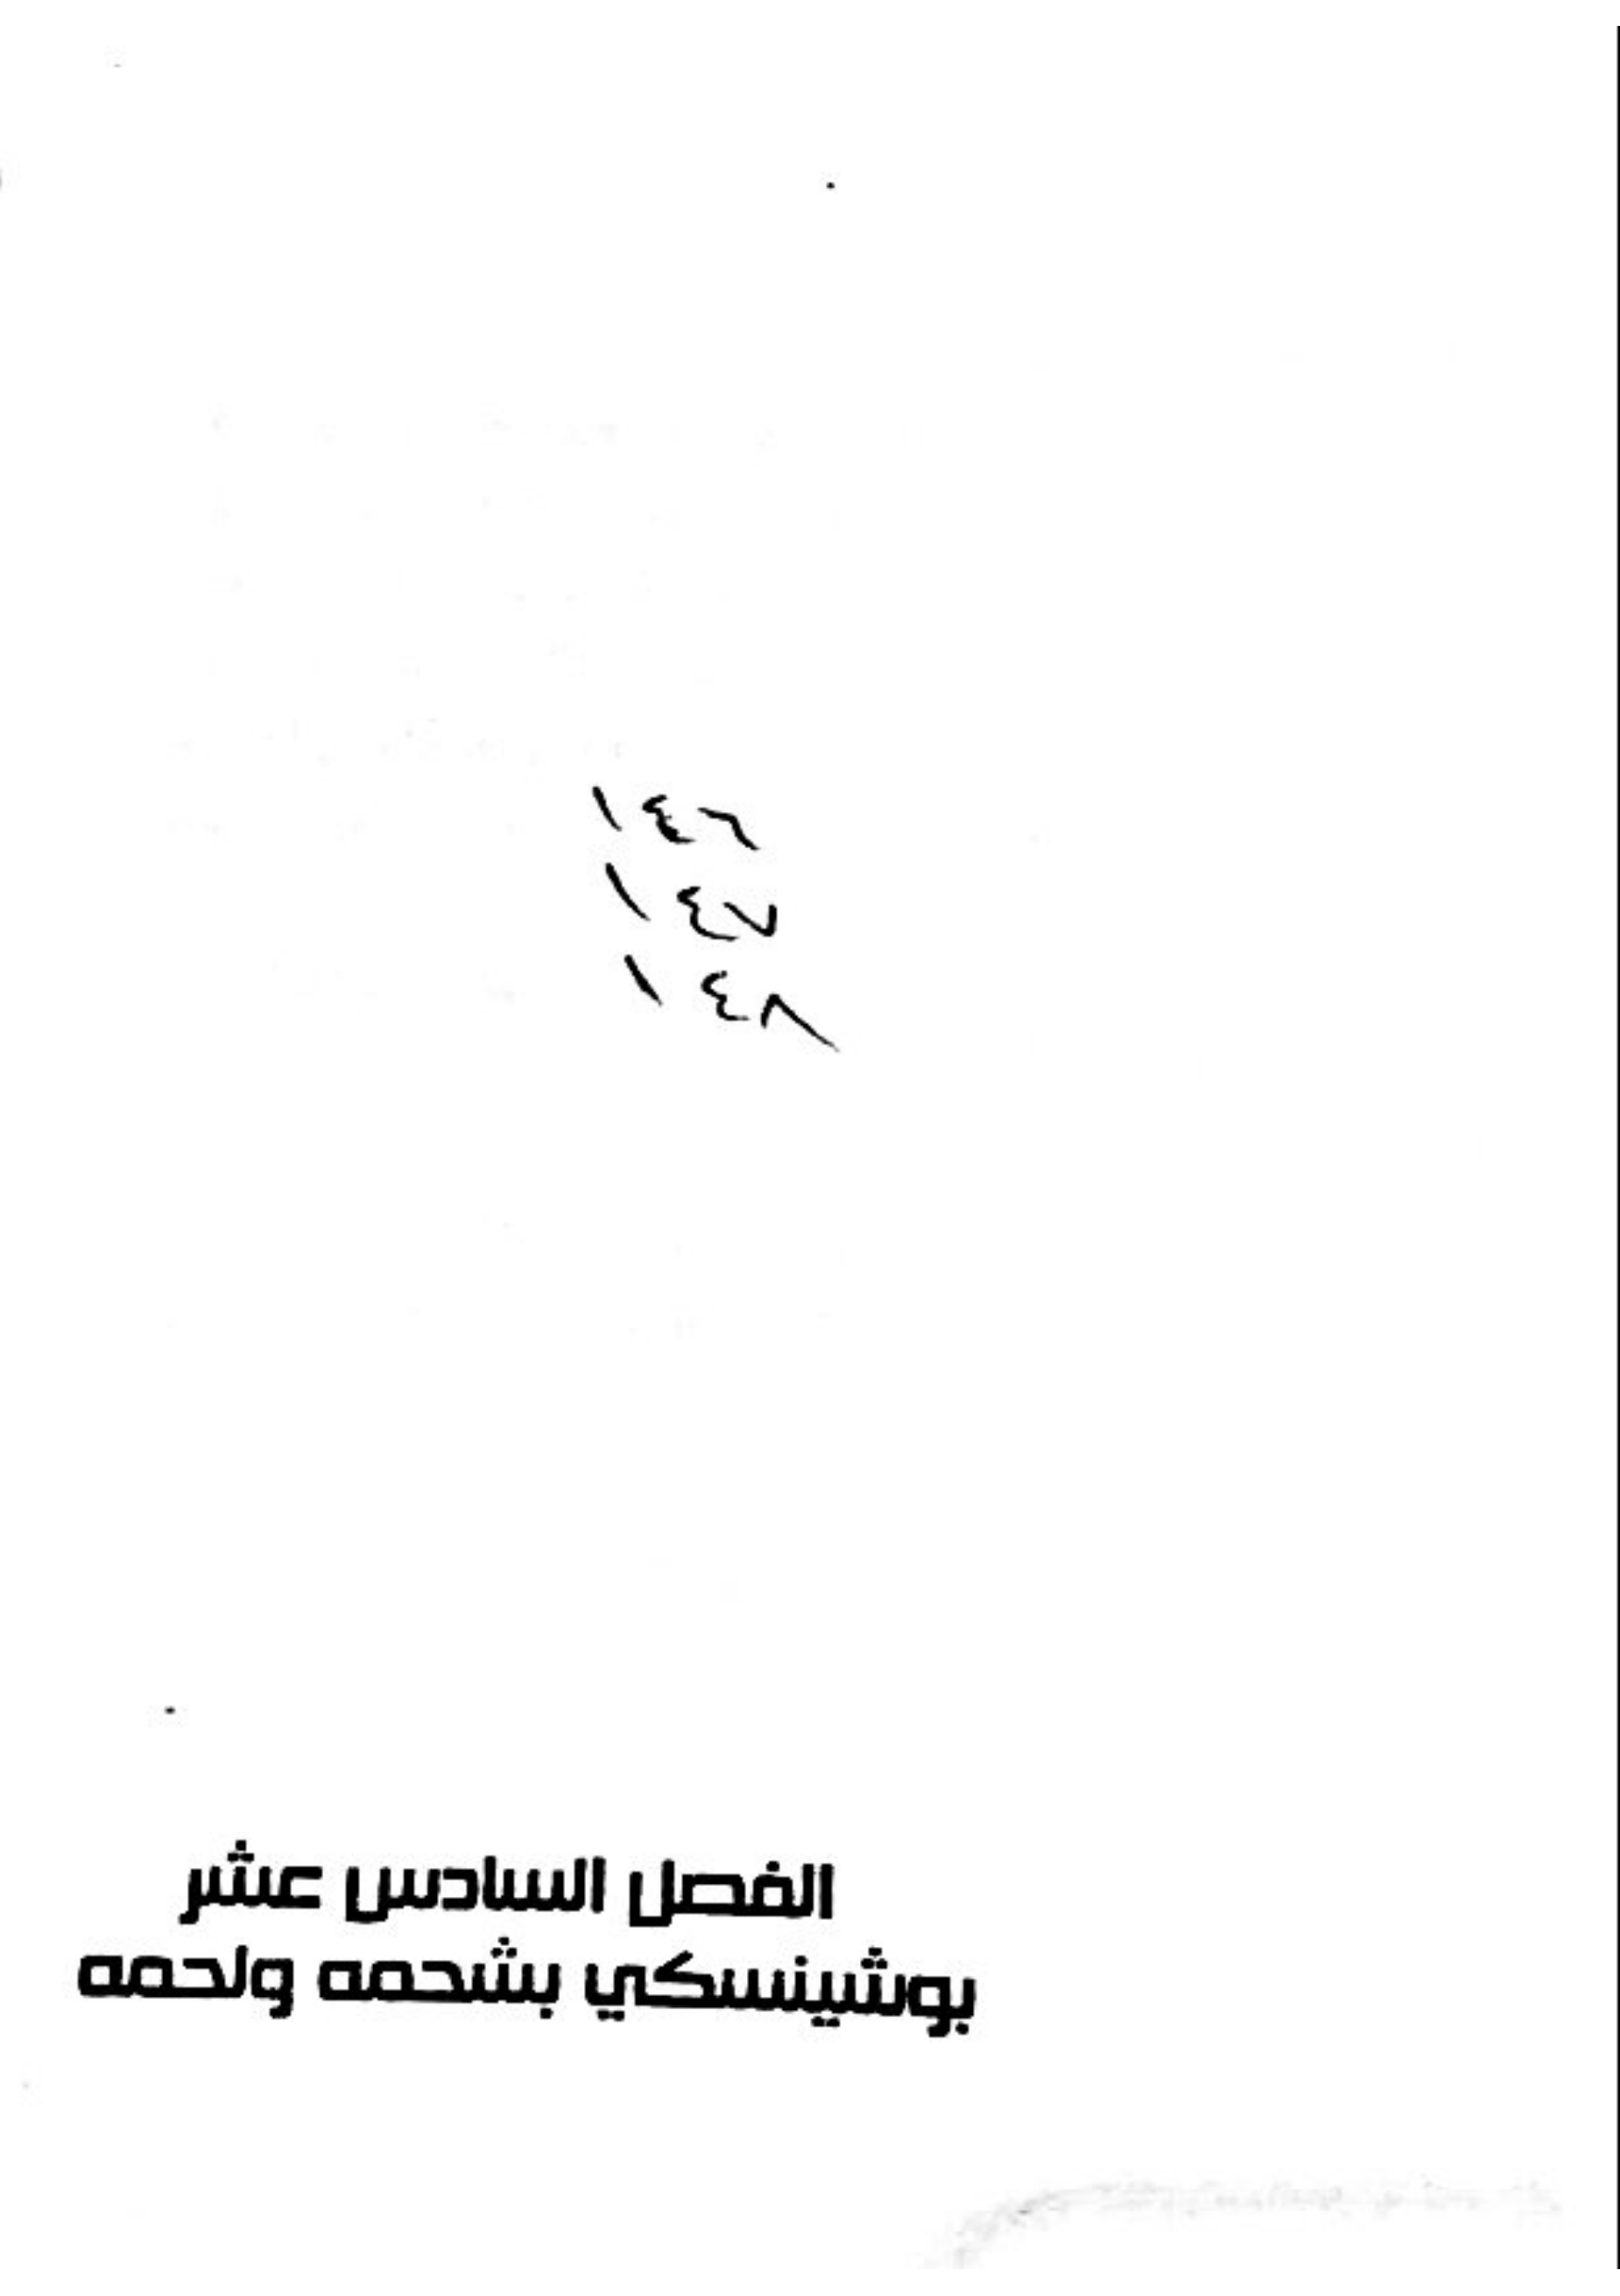 ١٤٦
١٤٧
١٤٨
الفصل السادس عشر
بوشينسكي بشحمه ولحمه